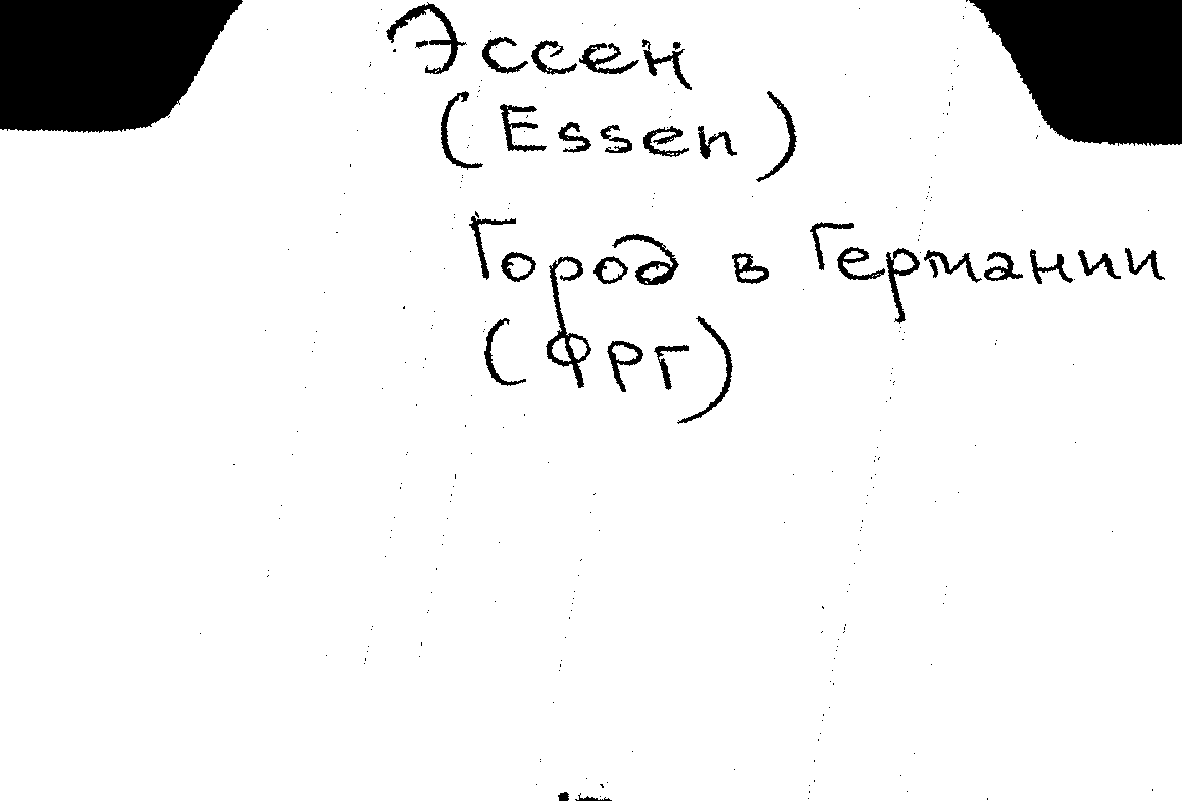 Эссен
(Essen)
Город в Германии
(ФРГ)